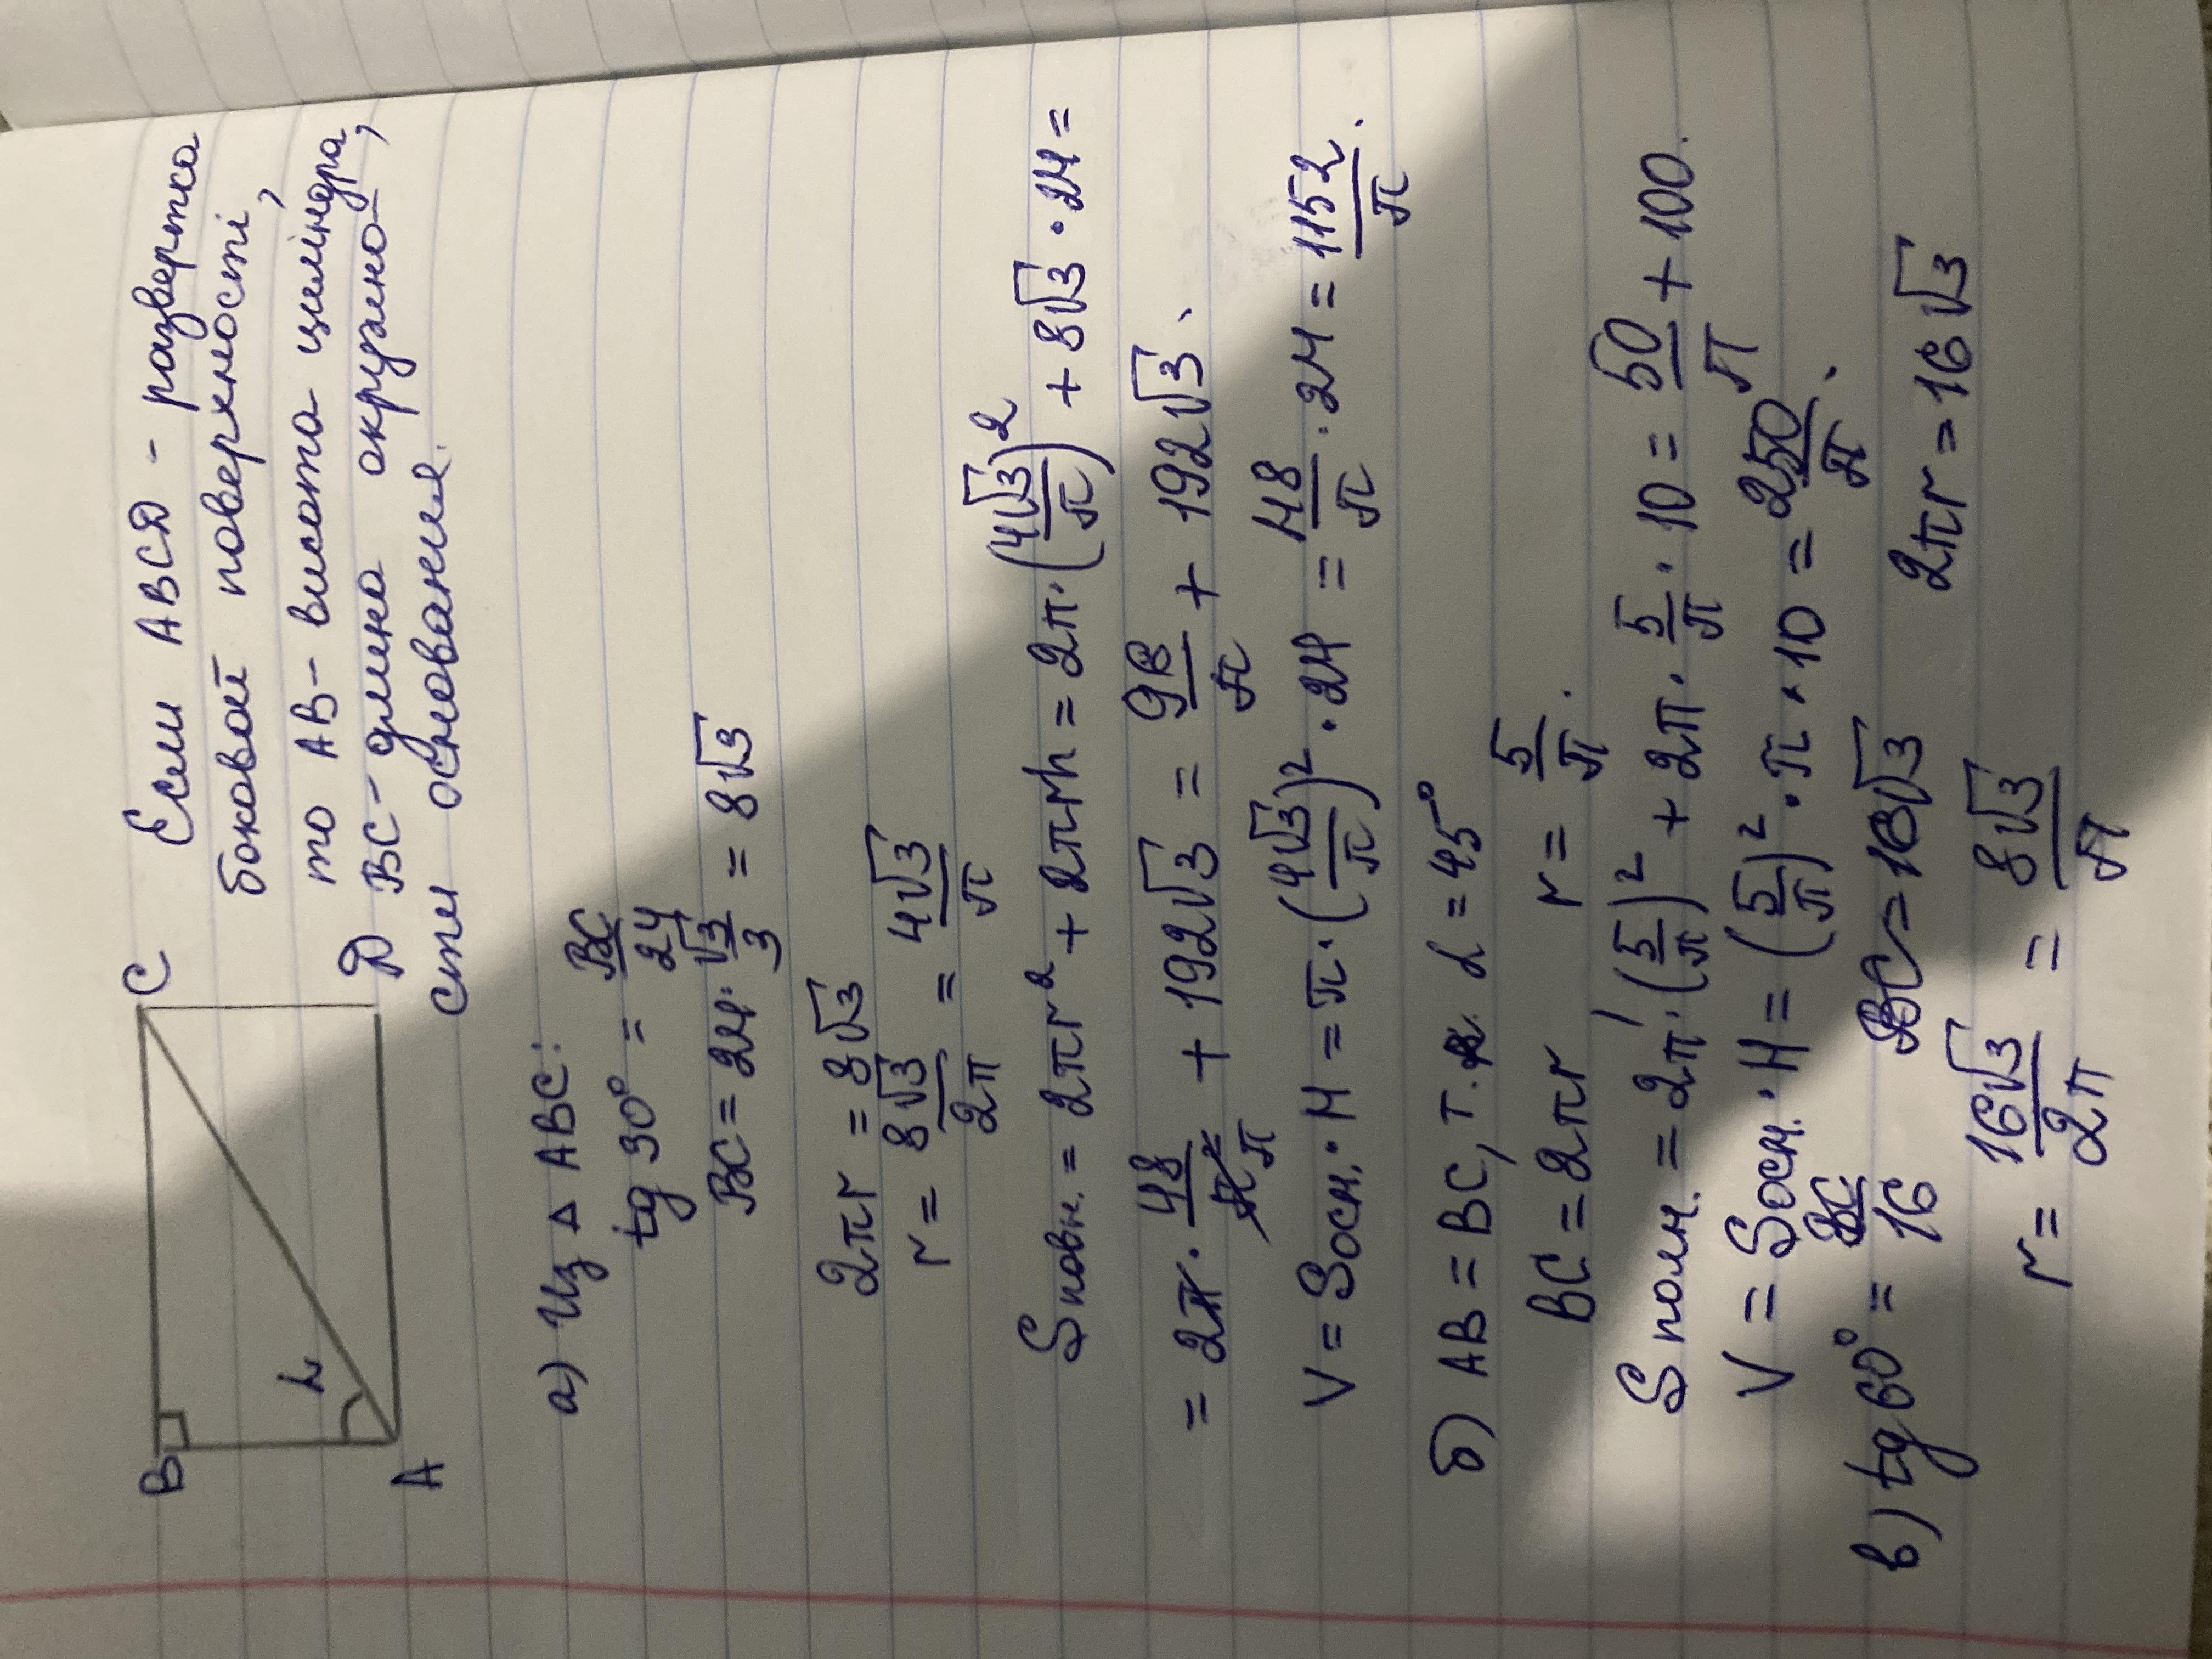 B
C
A
D
α
Если ABCD - развертка
боковой поверхності,
то AB - висота циліндра,
BC - длина окружно-
сти основания.
а) Из △ ABC:
tg 30° = BC/24
BC = 24 · √3/3 = 8√3
2πr = 8√3
r = 8√3/2π = 4√3/π
Sповн. = 2πr² + 2πrh = 2π · (4√3/π)² + 8√3 · 24 =
= 2π · 48/π² + 192√3 = 96/π + 192√3.
V = Sосн. · H = π · (4√3/π)² · 24 = 48/π · 24 = 1152/π.
б) AB = BC, т.к. α = 45°
BC = 2πr r = 5/π.
Sполн. = 2π · (5/π)² + 2π · 5/π · 10 = 50/π + 100.
V = Sосн. · H = (5/π)² · π · 10 = 250/π.
в) tg 60° = BC/16 BC = 16√3 2πr = 16√3
r = 16√3/2π = 8√3/π